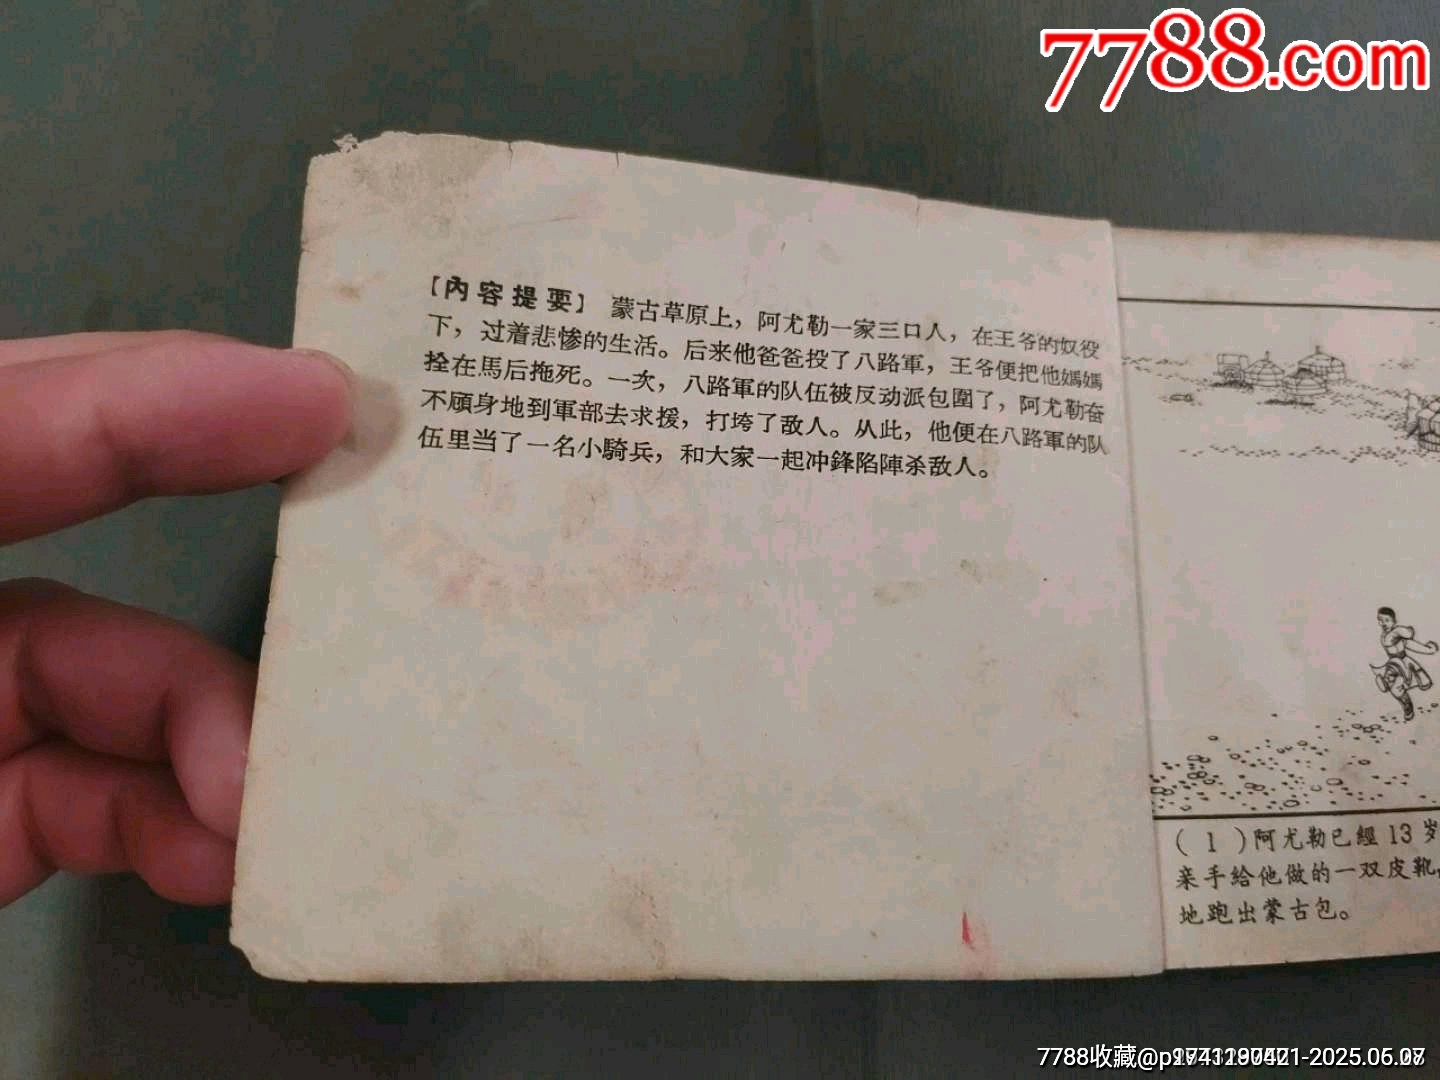 7788.com
【內容提要】 蒙古草原上，阿尤勒一家三口人，在王爷的奴役
下，过着悲惨的生活。后来他爸爸投了八路軍，王爷便把他媽媽
拴在馬后拖死。一次，八路軍的队伍被反动派包圍了，阿尤勒奋
不顾身地到軍部去求援，打垮了敌人。从此，他便在八路軍的队
伍里当了一名小騎兵，和大家一起冲鋒陷陣杀敌人。
（1）阿尤勒已經13岁
亲手給他做的一双皮靴，
地跑出蒙古包。
7788收藏